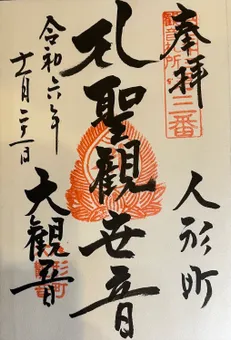 奉拝
三番
人形町
聖観世音
大観音
令和六年
十一月二十一日